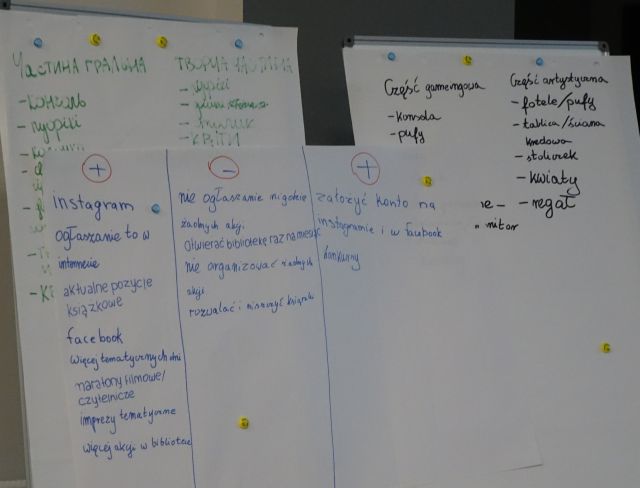 ЧАСТИНА ГРАЛЬНА
- КОНСОЛЬ
- ПУФІКИ
ТВОРЧА ЧАСТИНА
- КВІТИ
Część gamemgowa
- Konsola
- pufy
Część artystyczna
- fotele/pufy
- tablica/ściana
kredowa
- stoliczek
- kwiaty
- regał
+
instagram
ogłaszanie to w
internecie
aktualne pozycje
książkowe
facebook
więcej tematycznych dni
maratony filmowe/
czytelnicze
imprezy tematyczne
więcej akcji w bibliotece
-
nie ogłaszanie nigdzie
żadnych akcji
otwierać bibliotekę raz na miesiąc
nie organizować żadnych
akcji
rozwalać i niszczyć książki
+
założyć konto na
instagramie i w faubook
konkursy